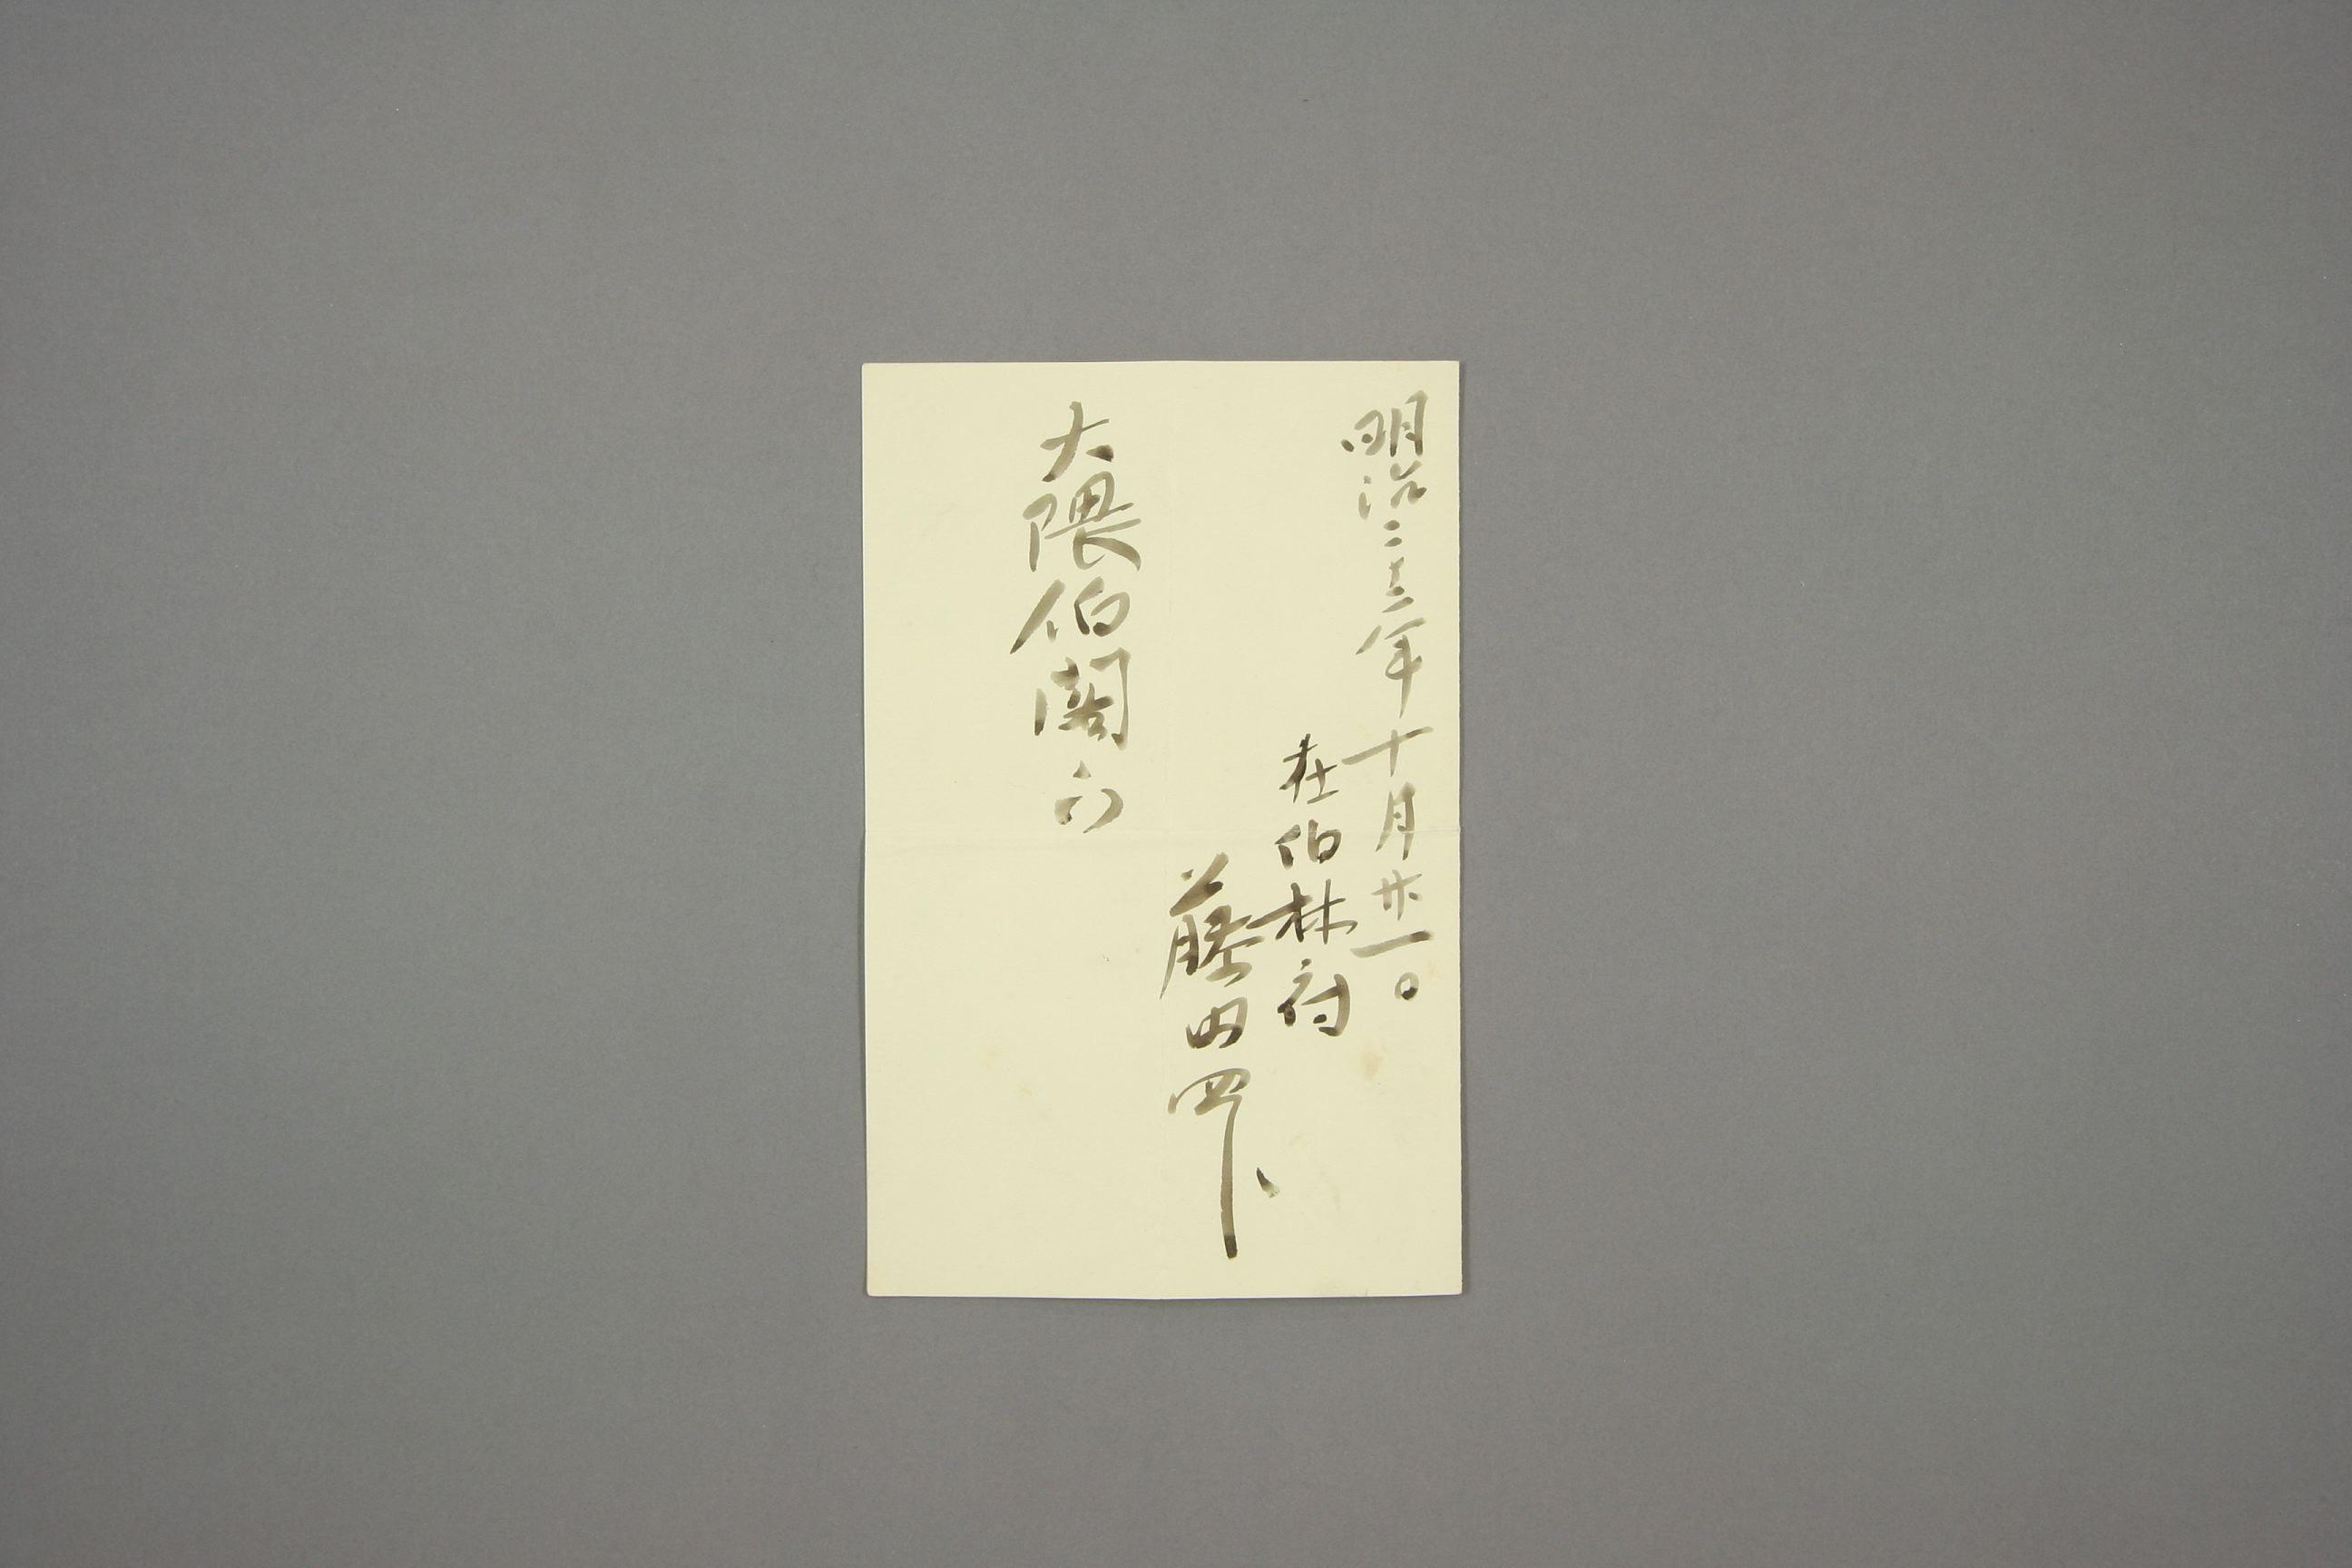 明治二十二年十月廿一日
在伯林府
藤田四郎
大隈伯閣下